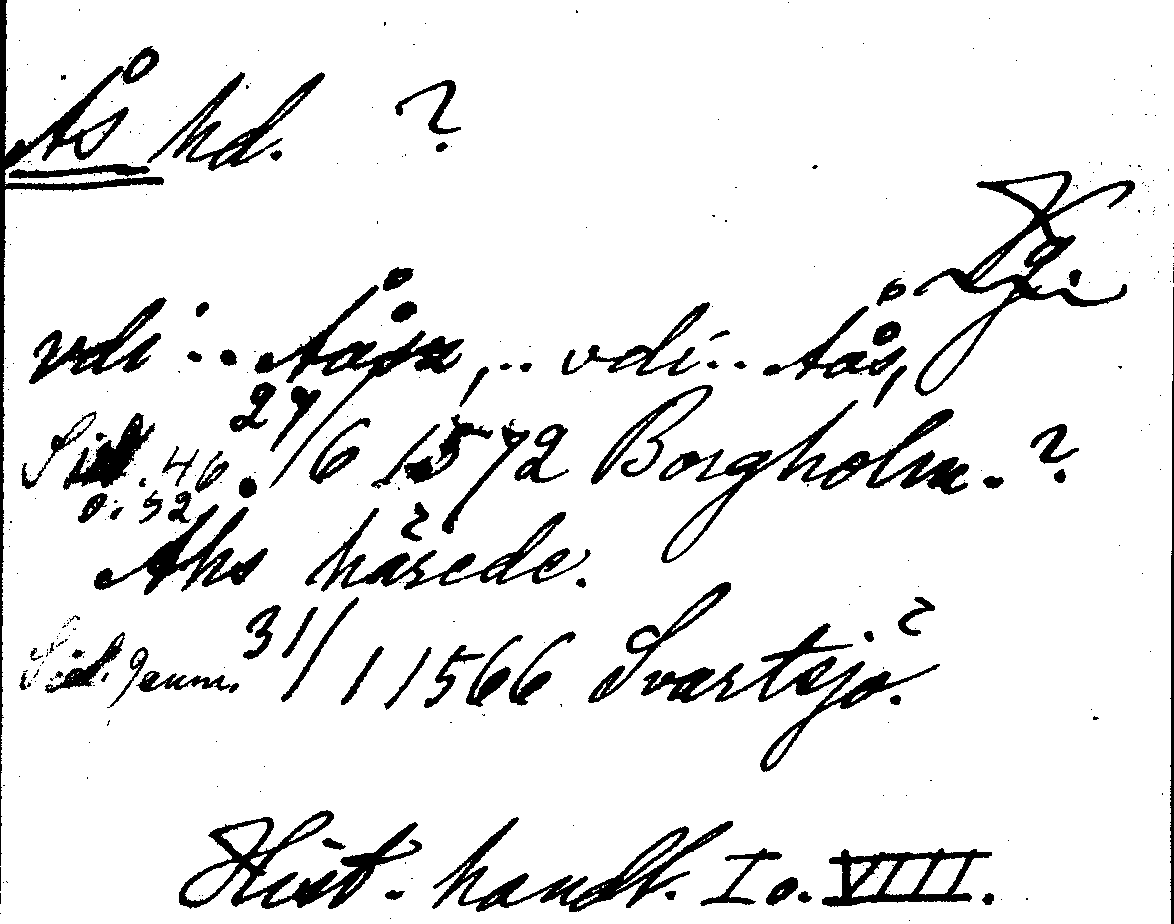 Ås hd. ?
vdi .. Aåsn, .. vdi .. Aås,
Sid. 46 o. 52. 27/6 1572 Borgholm. ?
Ahs härede.
Sid. 31/1 1566 Svartsjö. ?
Hist. handl. I o. VIII.